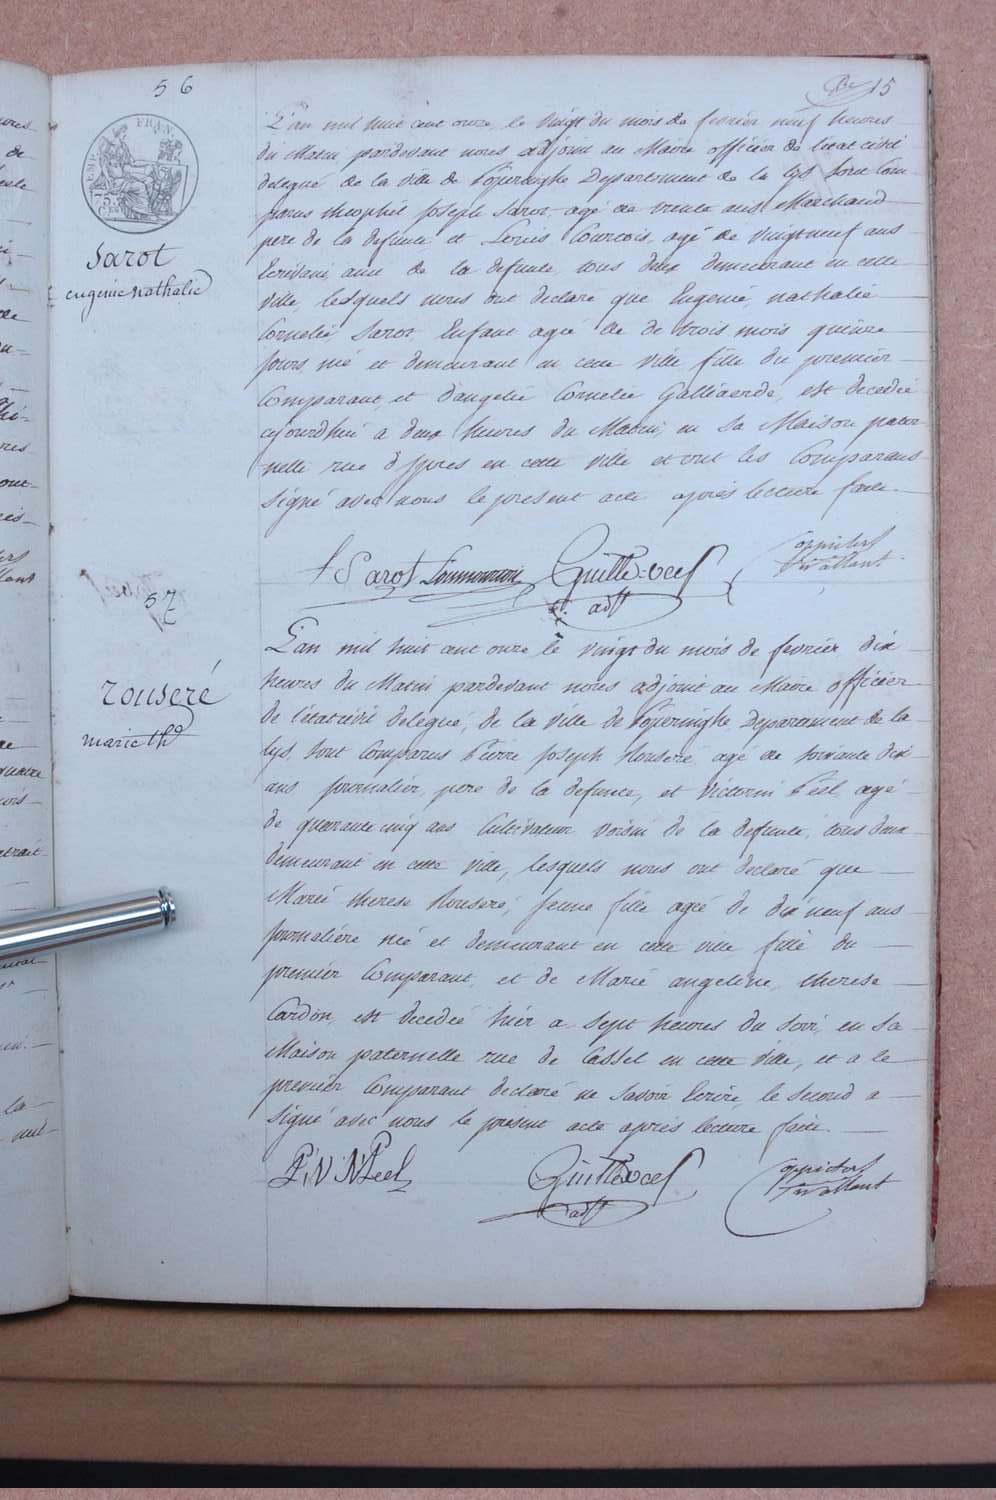 56
15
EMP. FRAN.
75 C.
Sarot
eugenie nathalie
L'an mil huit cent onze, le vingt du mois de fevrier neuf heures
du Matin pardevant nous adjoint au Maire officier de l'etat civil
delegué de la ville de Poperinghe Departement de la lys sont Com-
parus theophil Joseph Sarot, agé de trente ans Marchand
pere de la defunte et Louis Courtois, agé de vingt neuf ans
Ecrivain ami de la defunte, tous deux demeurant en cette
ville, lesquels nous ont declaré que Eugenie, nathalie
Cornelie, Sarot, Enfant agée de de trois mois quinze
jours né et demeurant en cette ville fille du premier
Comparant, et d'angelie Cornelie Galliaerde, est decedée
cejourdhui a deux heures du Matin, en sa Maison pater
nelle rue d'ypres en cette ville et ont les Comparans
signé avec nous le present acte après lecture faite.
T Sarot
adjt
57
rouseré
marie th.
L'an mil huit cent onze le vingt du mois de fevrier dix
heures du Matin pardevant nous adjoint au Maire officier
de l'etat civil delegué, de la ville de Poperinghe, Departement de la
lys, sont Comparus Pierre Joseph Rouseré, agé de soixante dix
ans journalier, pere de la defunte, et Victorin Péel, agé
de quarante cinq ans Cultivateur voisin de la defunte, tous deux
demeurant en cette ville, lesquels nous ont declaré que
Marie therese Rouseré, jeune fille agée de dix neuf ans
journaliere né et demeurant en cette ville fille du
premier Comparant, et de Marie angeline, therese
Cardon, est decedée hier a sept heures du soir, en sa
Maison paternelle rue de Cassel en cette ville, et a le
premier Comparant declaré ne savoir Ecrire, le second a
signé avec nous le present acte après lecture faite.
adjt